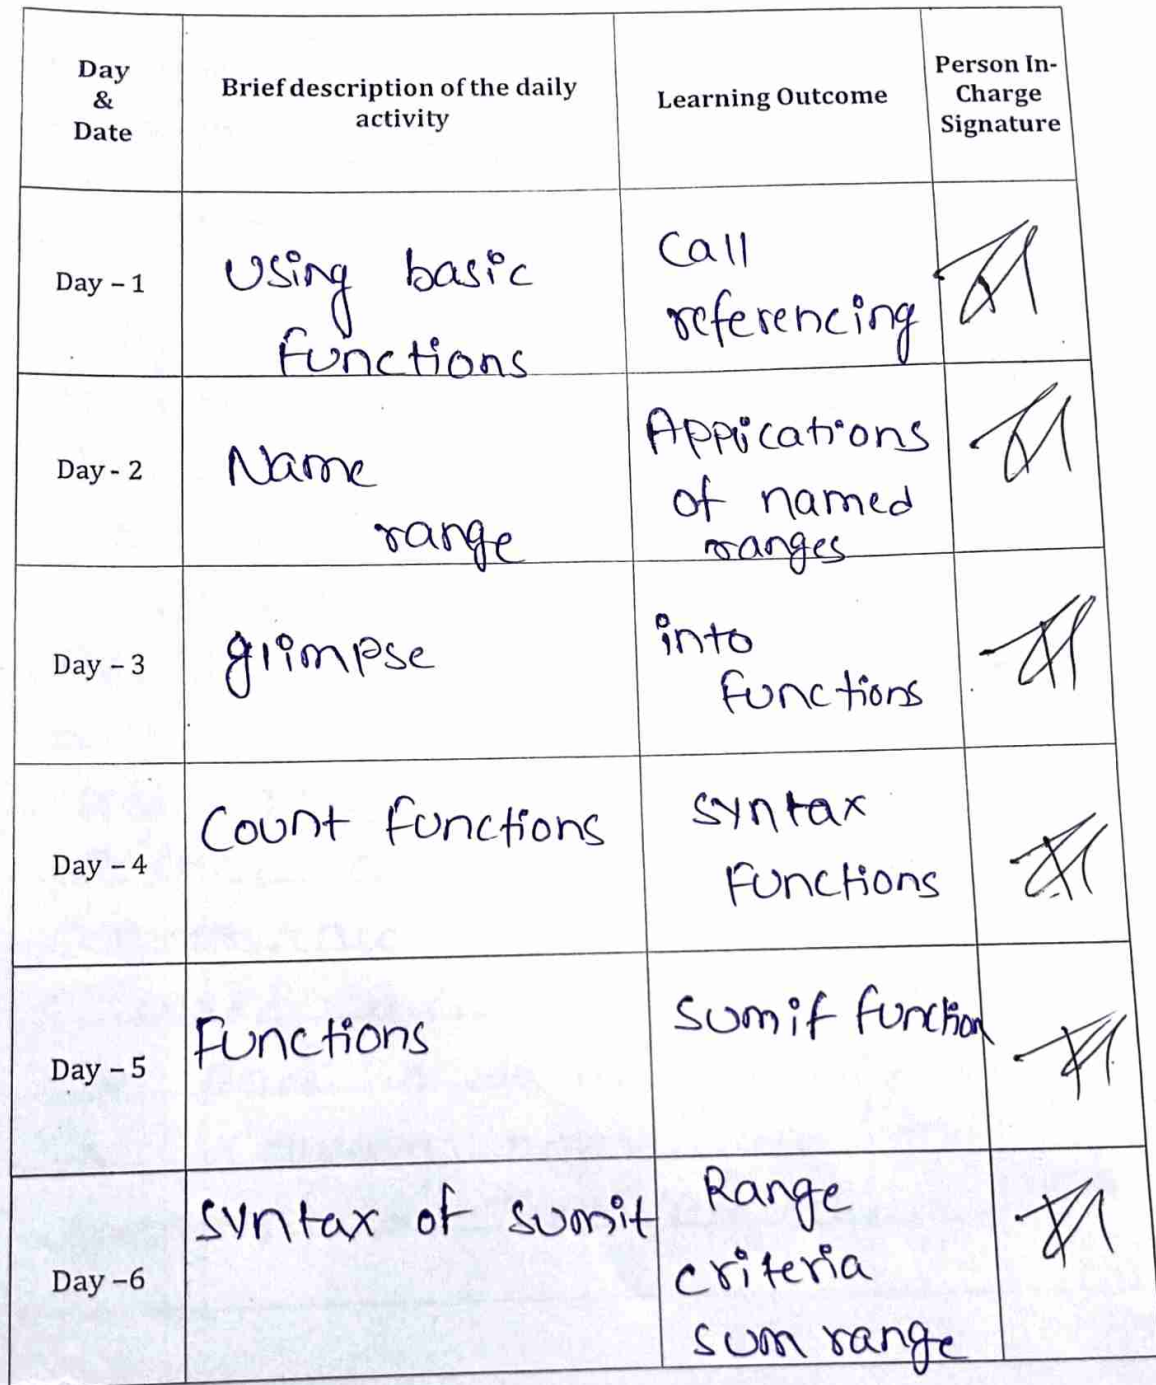 Day
&
Date
Brief description of the daily
activity
Learning Outcome
Person In-
Charge
Signature
Day – 1
Using basic
functions
Call
referencing
Day - 2
Name
range
Appications
of named
ranges
Day – 3
glimpse
into
functions
Day – 4
Count functions
syntax
Functions
Day – 5
Functions
Sumif function
Day –6
syntax of sumif
Range
criteria
sum range